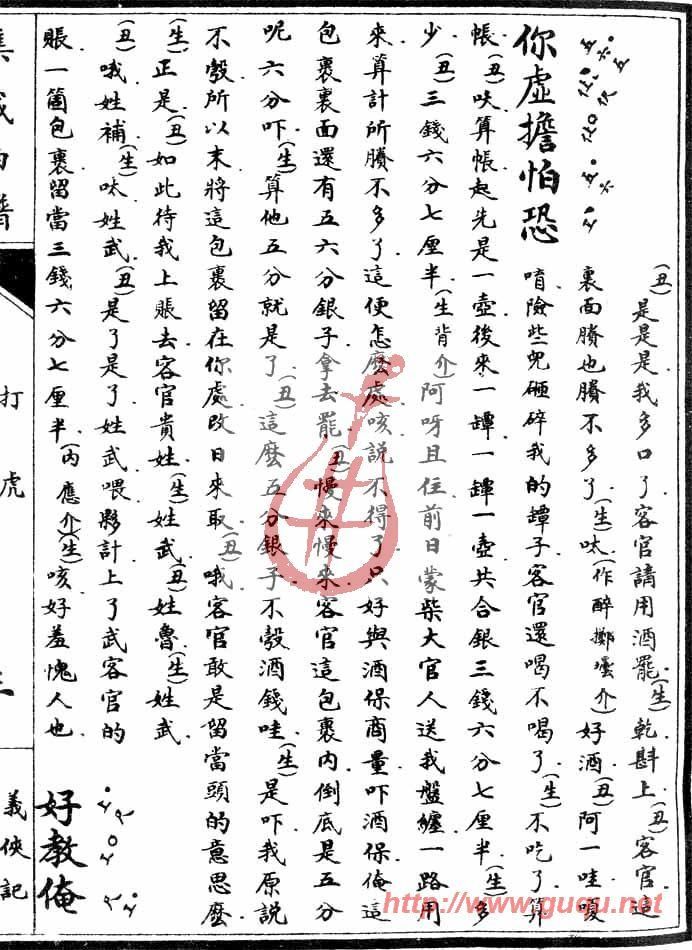 你虛擔怕恐
(丑)是是是我多口了客官請用酒罷(生)乾斟上(丑)客官這
裏面賸也賸不多了(生)呔(作醉擲罎介)好酒(丑)阿一哇嗄
唷險些兒砸碎我的罈子客官還喝不喝了(生)不吃了算
帳(丑)呔算帳起先是一壺後來一罈一罈一壺共合銀三錢六分七厘半(生)多
少(丑)三錢六分七厘半(生背介)阿呀且住前日蒙柴大官人送我盤纏一路用
來算計所賸不多了這便怎麽處咳說不得了只好與酒保商量吓酒保俺這
包裹裏面還有五六分銀子拿去罷(丑)慢來慢來客官這包裹內倒底是五分
呢六分吓(生)算他五分就是了(丑)這麽五分銀子不彀酒錢哇(生)是吓我原說
不彀所以末將這包裹留在你處改日來取(丑)哦客官敢是留當頭的意思麽
(生)正是(丑)如此待我上賬去客官貴姓(生)姓武(丑)姓魯(生)姓武
(丑)哦姓補(生)呔姓武(丑)是了是了姓武喂夥計上了武客官的
賬一箇包裹留當三錢六分七厘半(內應介)(生)咳好羞愧人也
好教俺
集成曲譜
打虎
義俠記
http://www.guqu.net